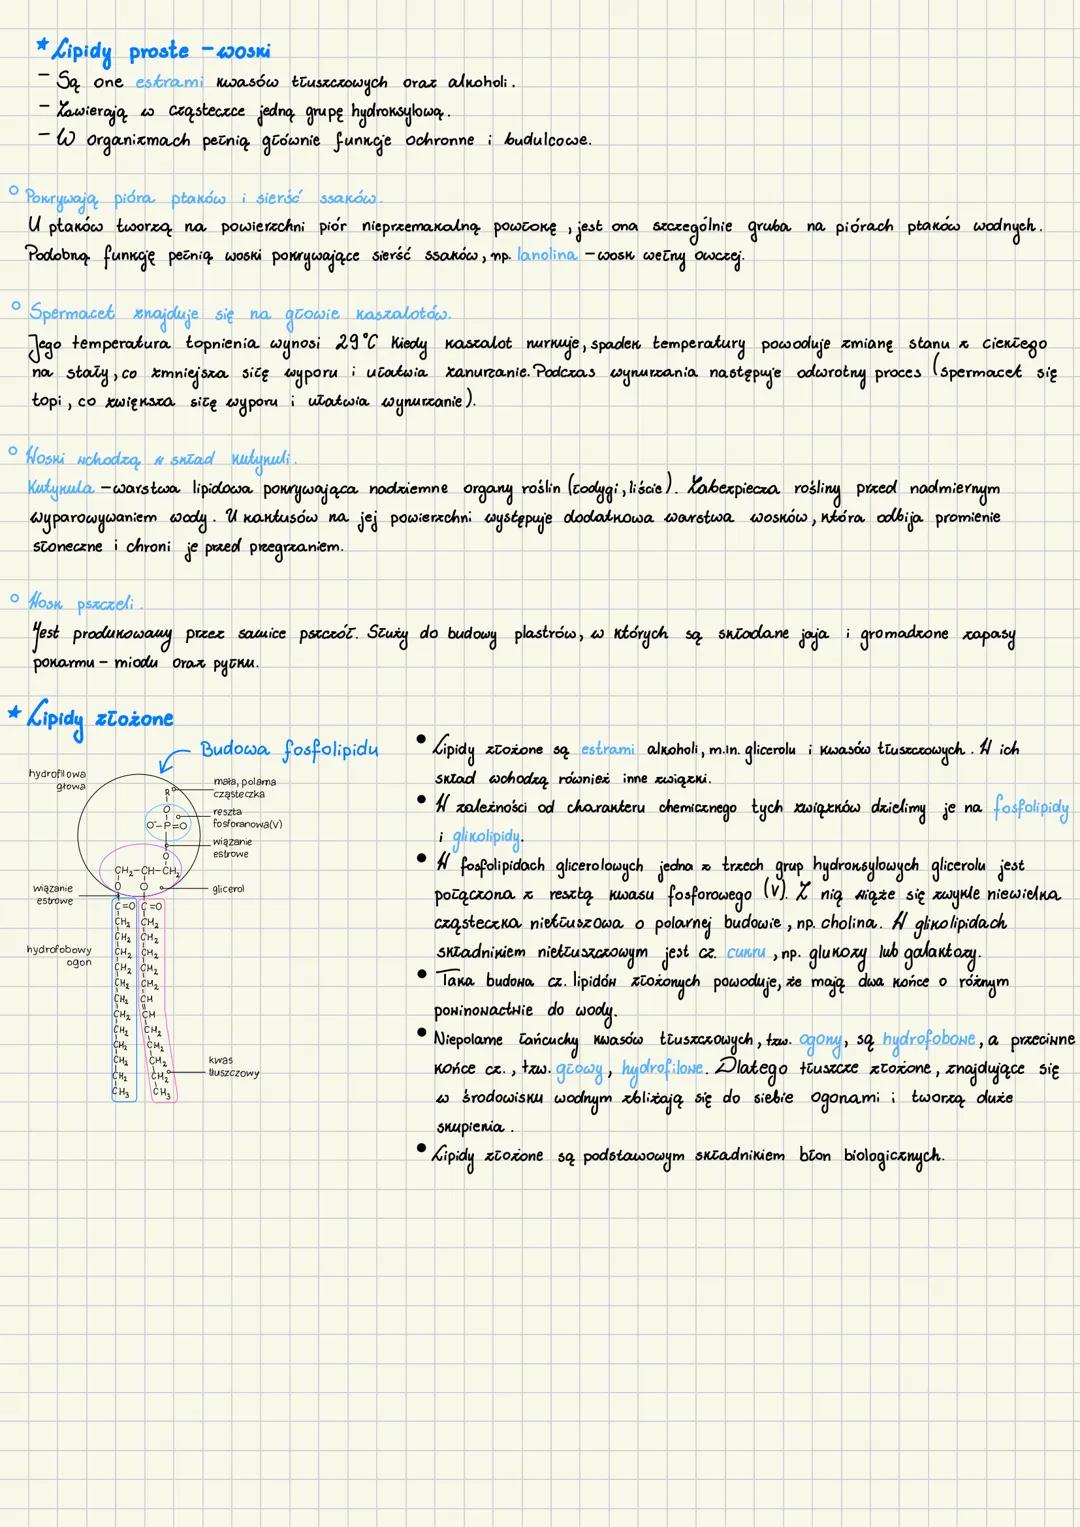 * Lipidy proste - woski
- Są one estrami kwasów tłuszczowych oraz alkoholi.
- Zawierają w cząsteczce jedną grupę hydroksylową.
- W organizmach pełnią głównie funkcje ochronne i budulcowe.
○ Pokrywają pióra ptaków i sierść ssaków.
U ptaków tworzą na powierzchni piór nieprzemakalną powłokę, jest ona szczególnie gruba na piórach ptaków wodnych.
Podobną funkcję pełnią woski pokrywające sierść ssaków, np. lanolina - wosk wełny owczej.
○ Spermacet znajduje się na głowie kaszalotów.
Jego temperatura topnienia wynosi 29°C Kiedy kaszalot nurkuje, spadek temperatury powoduje zmianę stanu z ciekłego
na stały, co zmniejsza siłę wyporu i ułatwia zanurzanie. Podczas wynurzania następuje odwrotny proces (spermacet się
topi, co zwiększa siłę wyporu i ułatwia wynurzanie).
○ Woski wchodzą w skład kutykuli.
Kutykula - warstwa lipidowa pokrywająca nadziemne organy roślin (łodygi, liście). Zabezpiecza rośliny przed nadmiernym
wyparowywaniem wody. U kaktusów na jej powierzchni występuje dodatkowa warstwa wosków, która odbija promienie
słoneczne i chroni je przed przegrzaniem.
○ Wosk pszczeli.
Jest produkowany przez samice pszczół. Służy do budowy plastrów, w których są składane jaja i gromadzone zapasy
pokarmu - miodu oraz pyłku.
* Lipidy złożone
Budowa fosfolipidu
hydrofilowa
głowa
mała, polarna
cząsteczka
R
O
reszta
fosforanowa(V)
O⁻-P=O
wiązanie
estrowe
O
CH₂-CH-CH₂
wiązanie
estrowe
O O
glicerol
C=O C=O
CH₂ CH₂
CH₂ CH₂
hydrofobowy
ogon
CH₂ CH₂
CH₂ CH₂
CH₂ CH₂
CH₂ CH
CH₂ CH
CH₂ CH₂
CH₂ CH₂
CH₂ CH₂
kwas
tłuszczowy
CH₂ CH₂
CH₃ CH₃
• Lipidy złożone są estrami alkoholi, m.in. glicerolu i kwasów tłuszczowych. W ich
skład wchodzą również inne związki.
• W zależności od charakteru chemicznego tych związków dzielimy je na fosfolipidy
i glikolipidy.
• W fosfolipidach glicerolowych jedna z trzech grup hydroksylowych glicerolu jest
połączona z resztą kwasu fosforowego (V). Z nią wiąże się zwykle niewielka
cząsteczka nietłuszowa o polarnej budowie, np. cholina. W glikolipidach
składnikiem nietłuszczowym jest cz. cukru, np. glukozy lub galaktozy.
• Taka budowa cz. lipidów złożonych powoduje, że mają dwa końce o różnym
powinowactwie do wody.
• Niepolarne łańcuchy kwasów tłuszczowych, tzw. ogony, są hydrofobowe, a przeciwne
końce cz., tzw. głowy, hydrofilowe. Dlatego tłuszcze złożone, znajdujące się
w środowisku wodnym zbliżają się do siebie ogonami i tworzą duże
skupienia.
• Lipidy złożone są podstawowym składnikiem błon biologicznych.